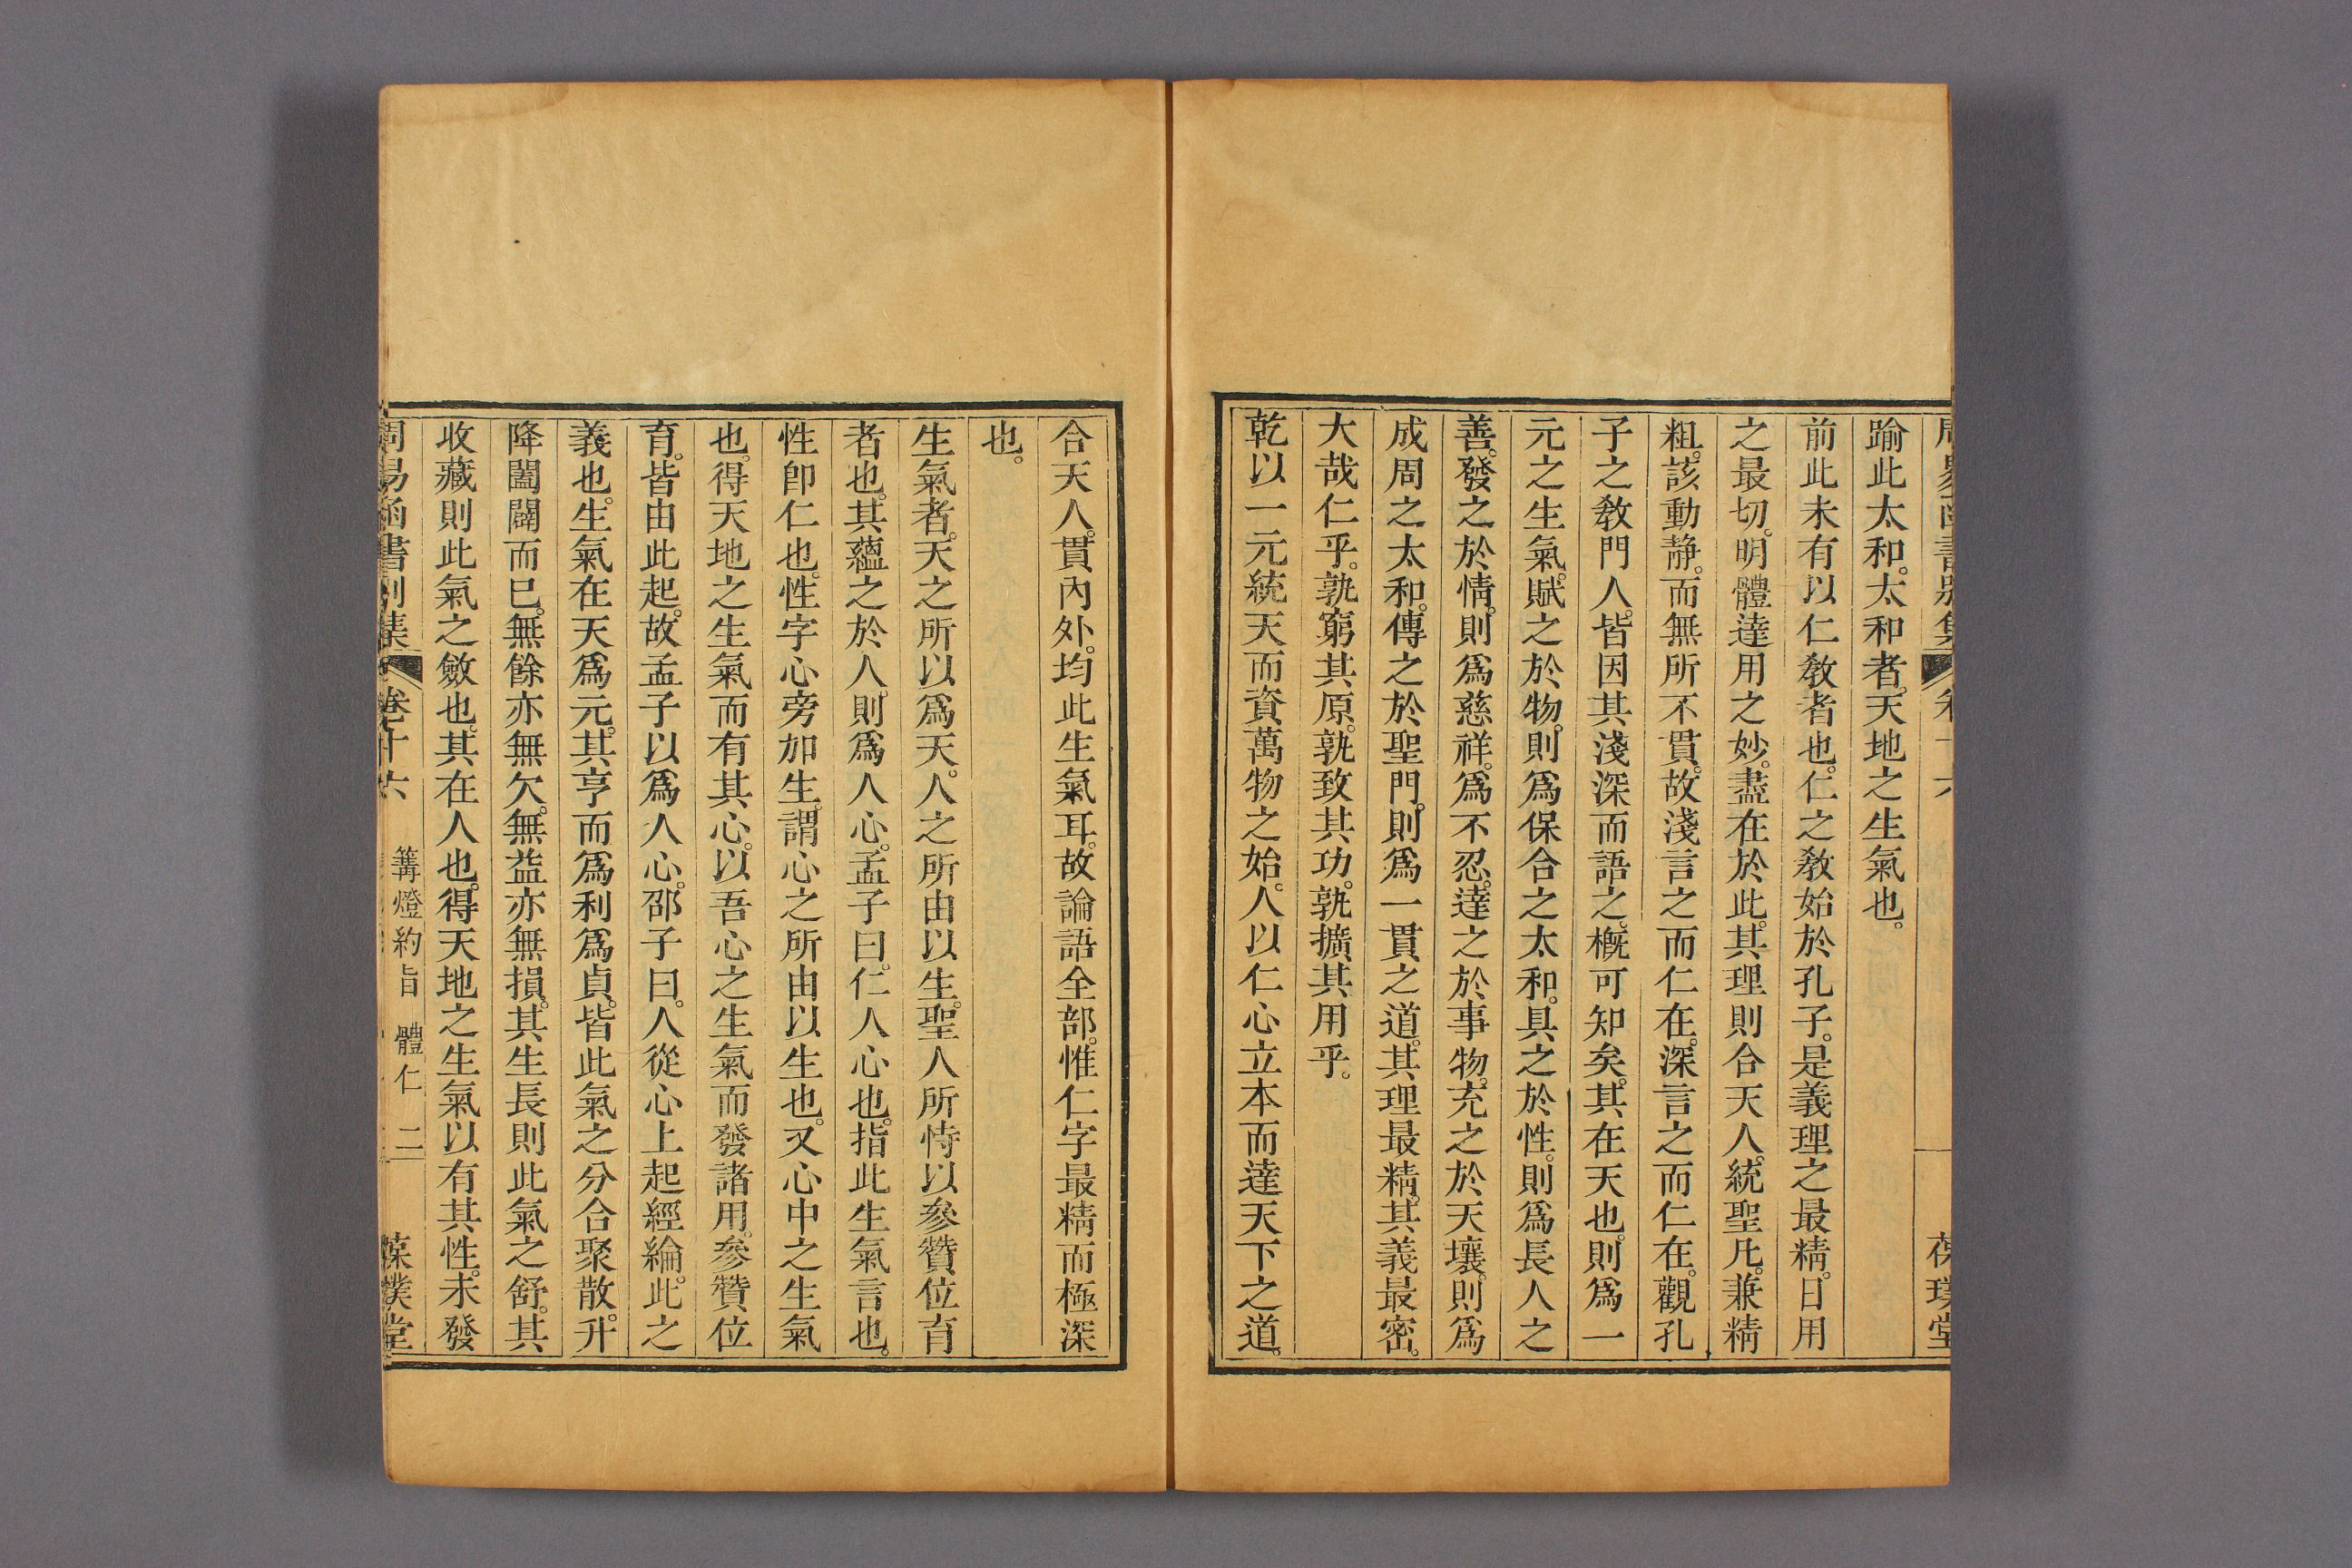 踰此太和。太和者。天地之生氣也。
前此未有以仁敎者也。仁之敎始於孔子。是義理之最精。日用
之最切。明體達用之妙。盡在於此。其理則合天人。統聖凡。兼精
粗。該動靜。而無所不貫。故淺言之而仁在。深言之而仁在。觀孔
子之敎門人。皆因其淺深而語之。槪可知矣。其在天也。則爲一
元之生氣。賦之於物。則爲保合之太和。具之於性。則爲長人之
善。發之於情。則爲慈祥。爲不忍。達之於事物。充之於天壤。則爲
成周之太和。傳之於聖門。則爲一貫之道。其理最精。其義最密。
大哉仁乎。孰窮其原。孰致其功。孰擴其用乎。
乾以一元統天而資萬物之始。人以仁心立本而達天下之道。
合天人。貫內外。均此生氣耳。故論語全部。惟仁字最精而極深
也。
生氣者。天之所以爲天。人之所由以生。聖人所恃以參贊位育
者也。其蘊之於人。則爲人心。孟子曰。仁人心也。指此生氣言也。
性卽仁也。性字心旁加生。謂心之所由以生也。又心中之生氣
也。得天地之生氣而有其心。以吾心之生氣而發諸用。參贊位
育。皆由此起。故孟子以爲人心。邵子曰。人從心上起經綸。此之
義也。生氣在天爲元。其亨而爲利爲貞。皆此氣之分合聚散。升
降闔闢而已。無餘亦無欠。無益亦無損。其生長則此氣之舒。其
收藏則此氣之斂也。其在人也。得天地之生氣以有其性。未發
周易函書別集 卷十六 篝燈約旨 體仁 二 葆璞堂